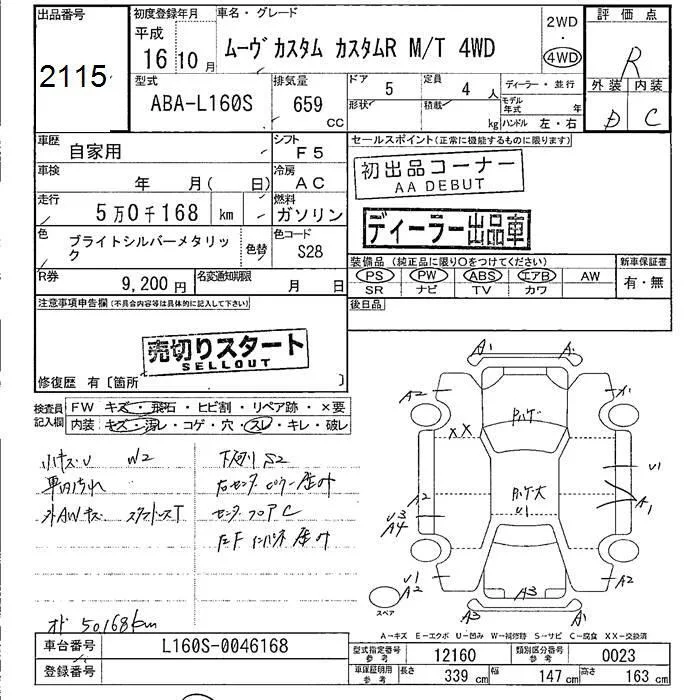 出品番号
2115
初度登録年月
平成
16 10月
車名・グレード
ムーヴ カスタム カスタムR M/T 4WD
2WD
・
4WD
評価点
R
外装 内装
D C
型式
ABA-L160S
排気量
659
cc
ドア
5
形状
定員
4 人
積載
kg
ディーラー・並行
モデル年式 年
ハンドル 左・右
車歴
自家用
シフト
F5
車検
年 月( 日)
冷房
AC
走行
5万0千168 km
燃料
ガソリン
色
ブライトシルバーメタリック
色替
色コード
S28
R券
9,200円
名変通知期限
月 日
セールスポイント(正常に機能するものに限ります)
初出品コーナー
AA DEBUT
ディーラー出品車
装備品(純正品に限り○をつけてください)
PS PW ABS エアB AW
SR ナビ TV カワ
新車保証書
有・無
後日品
注意事項申告欄(不具合内容等は具体的に記入して下さい)
売切りスタート
SELLOUT
修復歴 有〔箇所 〕
検査員記入欄
FW キズ・飛石・ヒビ割・リペア跡・×要
内装 キズ・汚レ・コゲ・穴・スレ・キレ・破レ
小キズ・U W2
下廻リ S2
車内汚れ
右センターピラー歪み
外AWキズ
センターフロアC
左Fインパネ歪み
オド 50168km
A1 A1
A2
XX
U1
A1
A2
U3
A4
U1
A2
スペア
A3
A2
A3 A1
A－キズ E－エクボ U－凹み W－補修跡 S－サビ C－腐食 XX－交換済
車台番号
L160S-0046168
登録番号
型式指定番号
参考
12160
類別区分番号
参考
0023
車庫証明用
参考
長さ
339 cm
幅
147 cm
高さ
163 cm